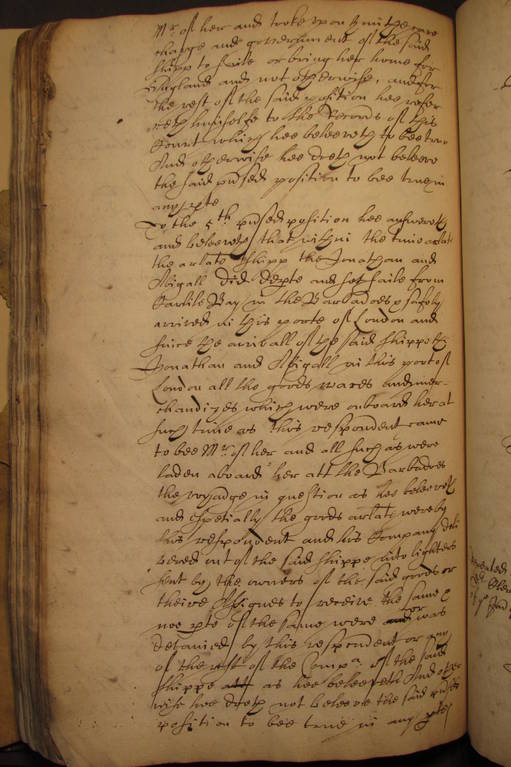 Mr of her and tooke upon him the care
charge and government of the said
shipp to saile or bring her home for
England and not otherwise, and for
the rest of the said position hee refer
reth himselfe to the Records of this
Court which hee beleeveth to bee true
And otherwise hee doth not beleeve
the said pnsed position to bee true in
any pte
To the 5th pnsed position hee answereth
and beleeveth that within the time arlate
the arlate shipp the Jonathan and
Abigall did depte and set saile from
Carlile Bay in the Barbadoes & safely
arrived in this porte of London and
since the arrivall of the said shipp the
Jonathan and Abigall in this port of
London all the goods wares and mer-
chandizes which were onboard her at
such time as this respondent came
to bee Mr of her and all such as were
laden aboard her att the Barbadoes
the voyadge in question as hee beleeveth
and espetially the goods arlate were by
this respondent and his Company deli
vered out of the said shippe into lighters
sent by the owners of the said goods or
theire Assignes to receive the same &
noe pte of the same were or was
detained by this respondent or any
of the rest of the Compa of the said
shippe as hee beleeveth And other
wise hee doth not beleeve the said pnsed
position to bee true in any pte